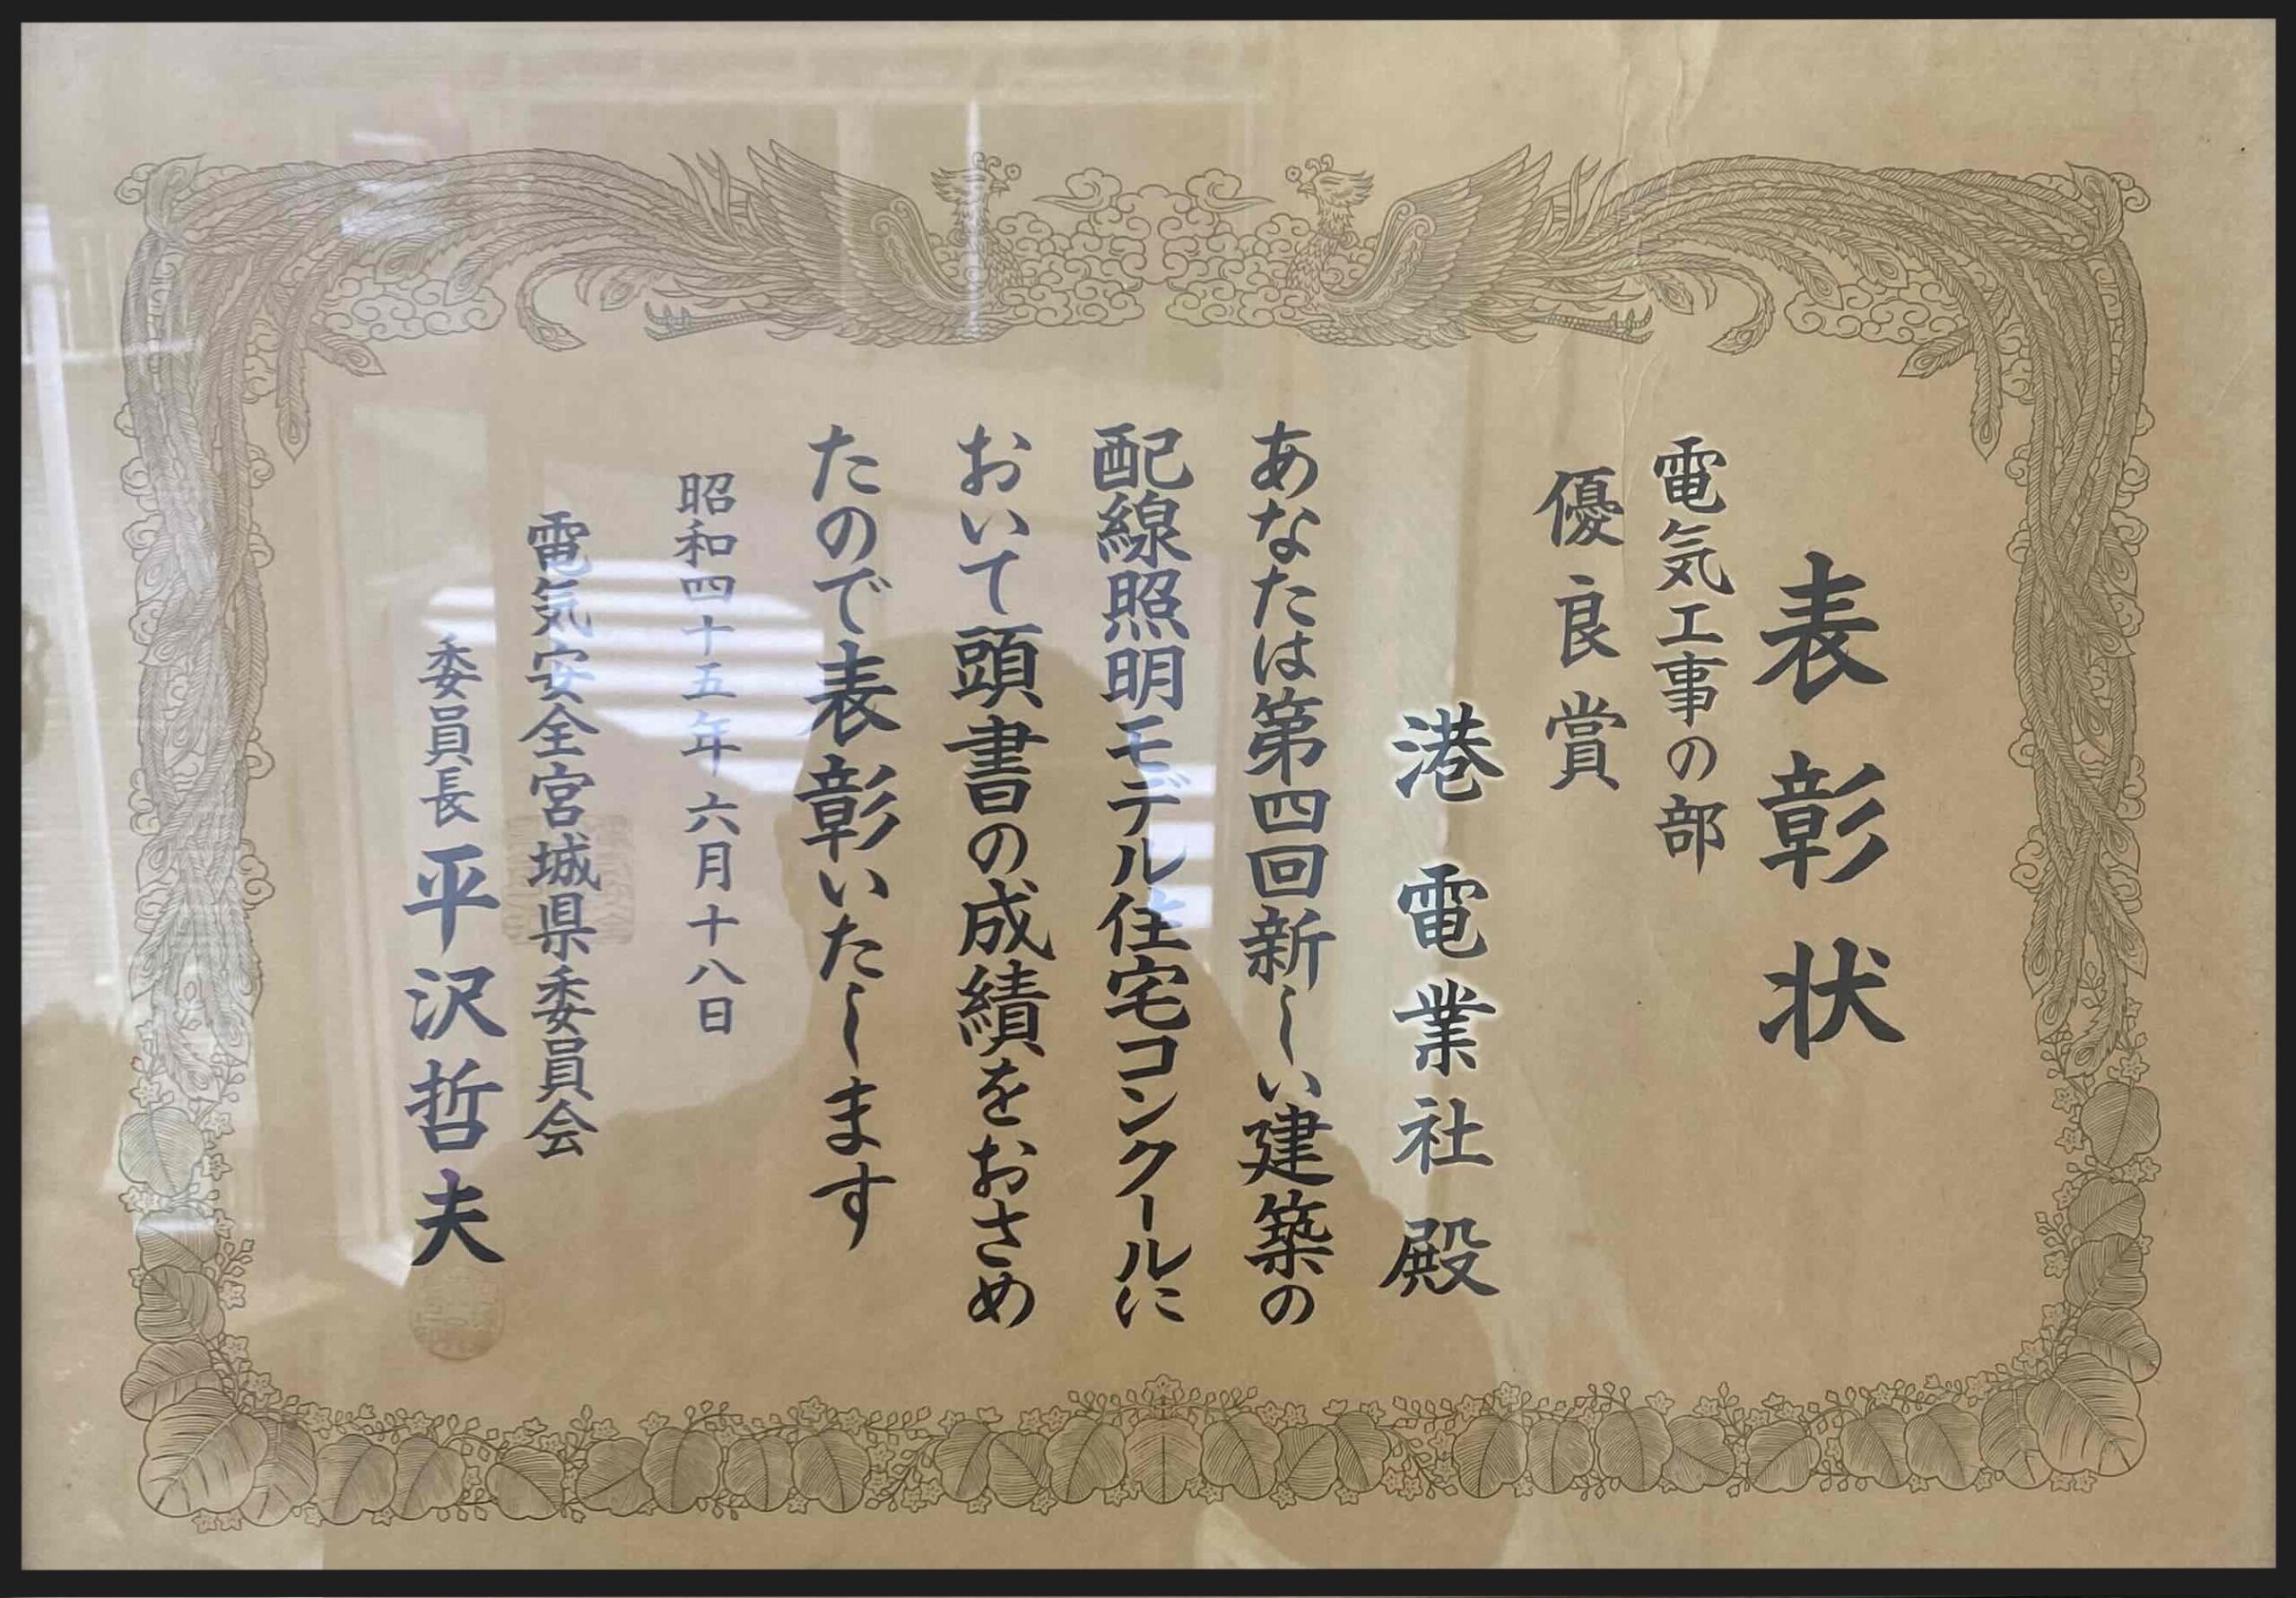 表彰状
電気工事の部
優良賞
港電業社殿
あなたは第四回新しい建築の
配線照明モデル住宅コンクールに
おいて頭書の成績をおさめ
たので表彰いたします
昭和四十五年六月十八日
電気安全宮城県委員会
委員長 平沢哲夫